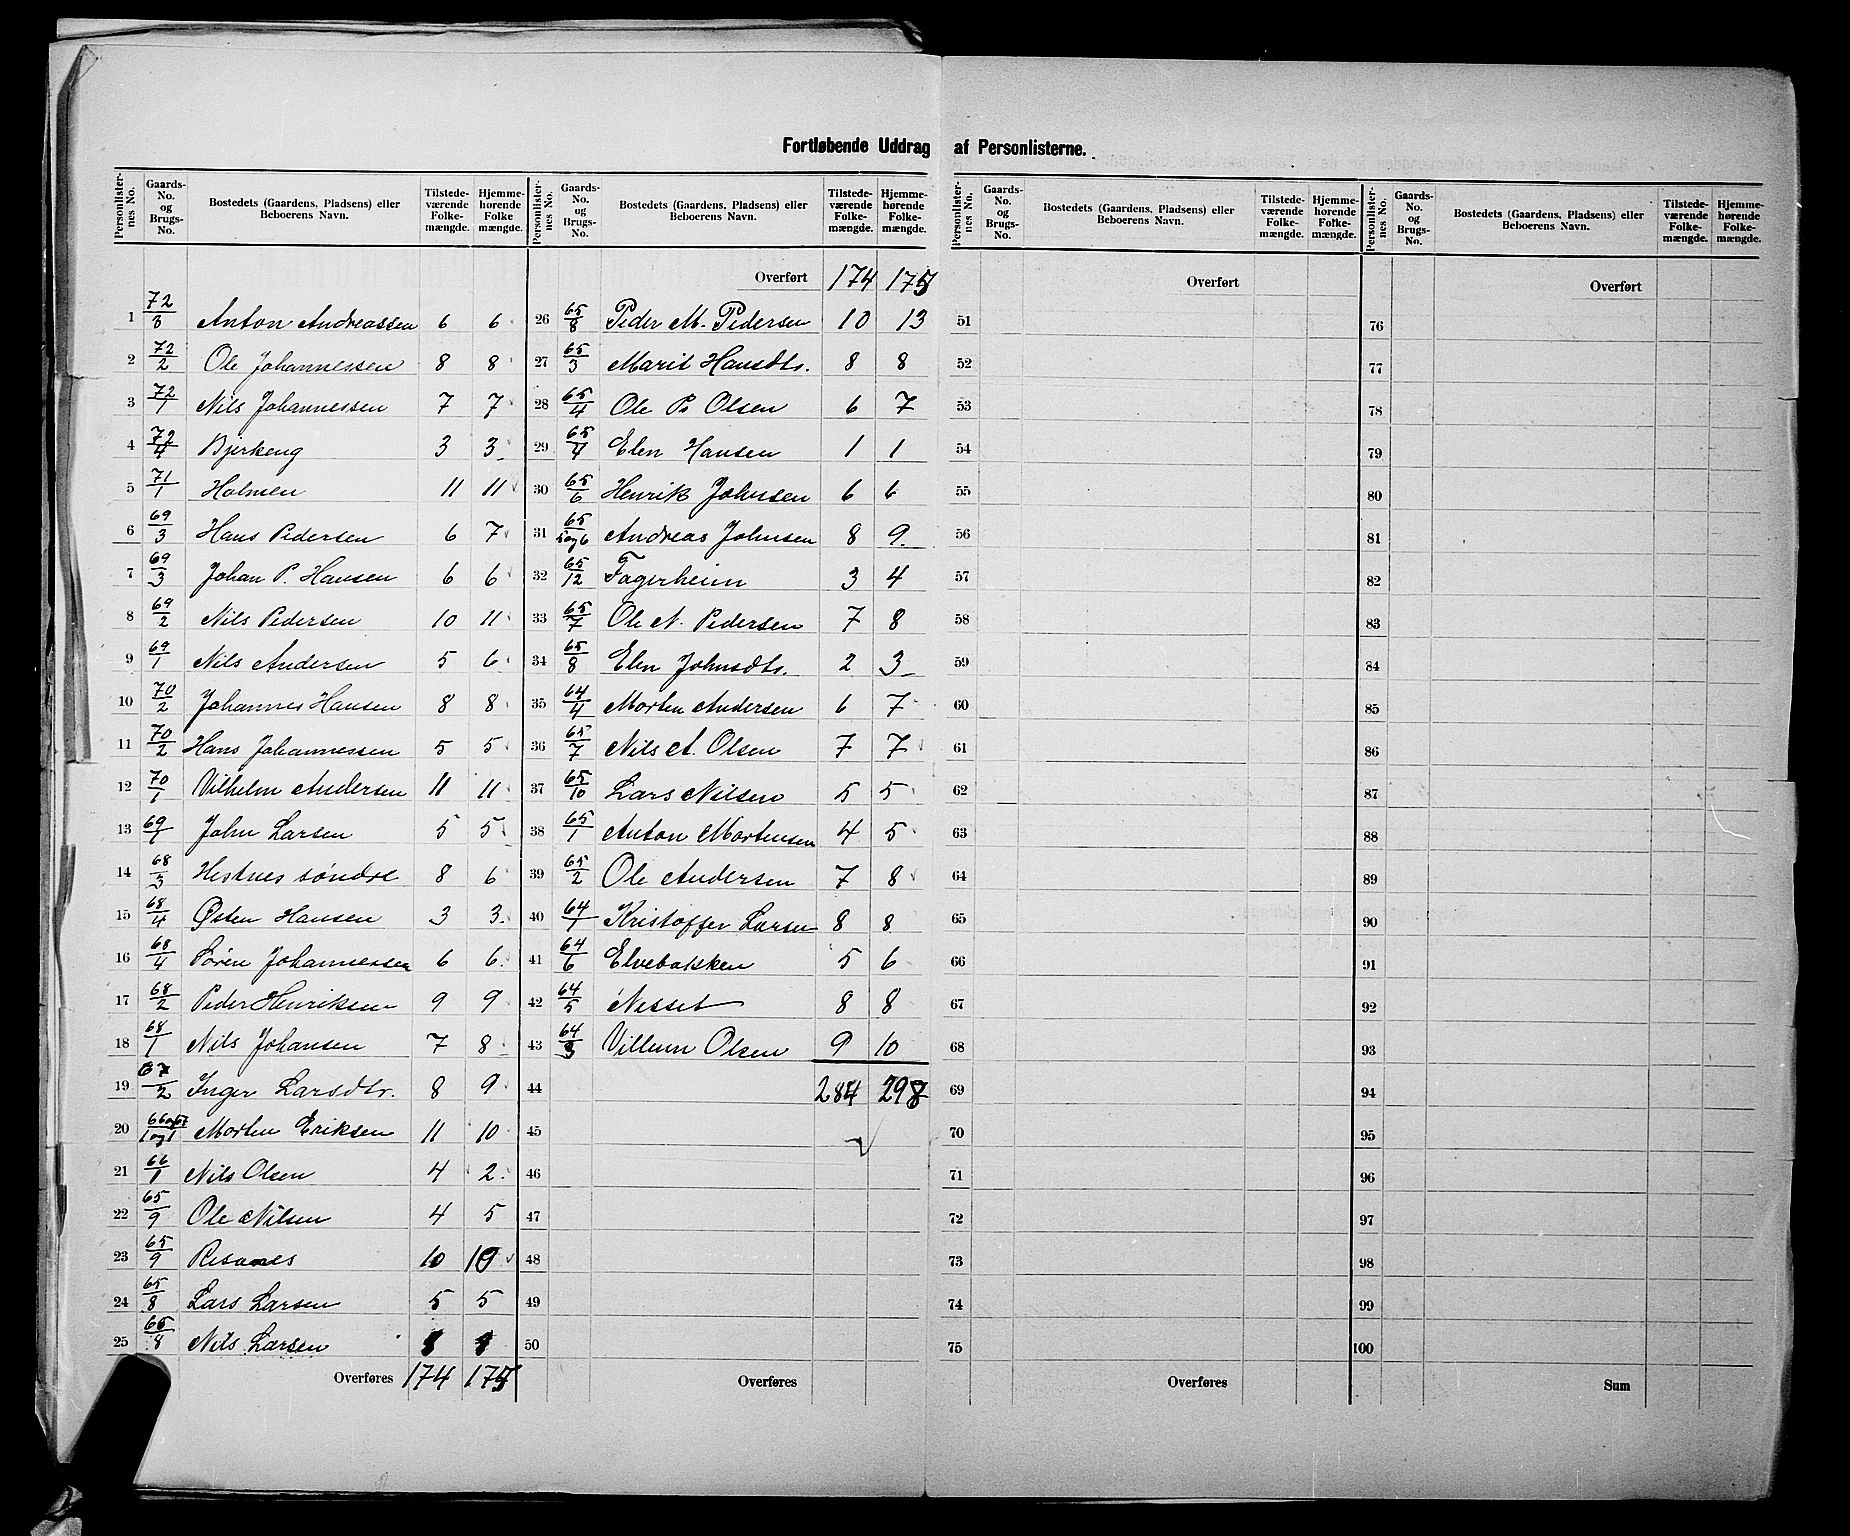 Fortløbende Uddrag af Personlisterne.
Personlister-nes No. Gaards-No. og Brugs-No. Bostedets (Gaardens, Pladsens) eller Beboerens Navn. Tilstede-værende Folke-mængde. Hjemme-hørende Folke mængde.
1 72/3 Anton Andreassen 6 6
2 72/2 Ole Johannessen 8 8
3 72/1 Nils Johannessen 7 7
4 72/4 Bjerkeng 3 3
5 71/1 Holmen 11 11
6 69/3 Hans Pedersen 6 7
7 69/3 Johan P. Hansen 6 6
8 69/2 Nils Pedersen 10 11
9 69/1 Nils Andersen 5 6
10 70/2 Johannes Hansen 8 8
11 70/2 Hans Johannessen 5 5
12 70/1 Vilhelm Andersen 11 11
13 69/1 John Larsen 5 5
14 68/3 Hestnes söndre 8 6
15 68/4 Østen Hansen 3 3
16 68/4 Sören Johannessen 6 6
17 68/2 Peder Henriksen 9 9
18 68/1 Nils Johansen 7 8
19 67/2 Inger Larsdtr. 8 9
20 66og67/1og1 Morten Eriksen 11 10
21 66/1 Nils Olsen 4 2
22 65/9 Ole Nilsen 4 5
23 65/9 Risanes 10 10
24 65/8 Lars Larsen 5 5
25 65/8 Nils Larsen
Overføres 174 175
Personlister-nes No. Gaards-No. og Brugs-No. Bostedets (Gaardens, Pladsens) eller Beboerens Navn. Tilstede-værende Folke-mængde. Hjemme-hørende Folke-mængde.
Overført 174 175
26 65/8 Peder M. Pedersen 10 13
27 65/3 Marit Hansdtr. 8 8
28 65/4 Ole P. Olsen 6 7
29 65/4 Elen Hansen 1 1
30 65/6 Henrik Johnsen 6 6
31 65/5og6 Andreas Johnsen 8 9
32 65/12 Fagerheim 3 4
33 65/7 Ole N. Pedersen 7 8
34 65/8 Elen Johnsdtr. 2 3
35 64/4 Morten Andersen 6 7
36 65/7 Nils A. Olsen 7 7
37 65/10 Lars Nilsen 5 5
38 65/1 Anton Mortensen 4 5
39 65/2 Ole Andersen 7 8
40 64/1 Kristoffer Larsen 8 8
41 64/6 Elvebakken 5 6
42 64/5 Nesset 8 8
43 64/3 Villum Olsen 9 10
44 284 298
45
46
47
48
49
50
Overføres
Personlister-nes No. Gaards-No. og Brugs-No. Bostedets (Gaardens, Pladsens) eller Beboerens Navn. Tilstede-værende Folke-mængde. Hjemme-hørende Folke-mængde.
Overført
51
52
53
54
55
56
57
58
59
60
61
62
63
64
65
66
67
68
69
70
71
72
73
74
75
Overføres
Personlister-nes No. Gaards-No. og Brugs-No. Bostedets (Gaardens, Pladsens) eller Beboerens Navn. Tilstede-værende Folke-mængde. Hjemme-hørende Folke-mængde.
Overført
76
77
78
79
80
81
82
83
84
85
86
87
88
89
90
91
92
93
94
95
96
97
98
99
100
Sum